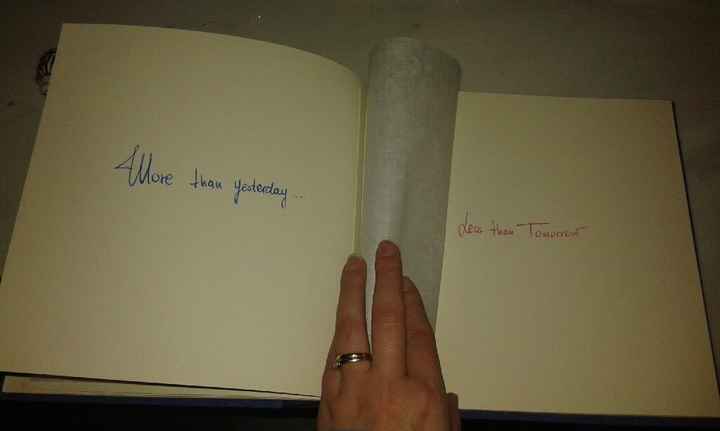 More than yesterday...
Less than Tomorrow